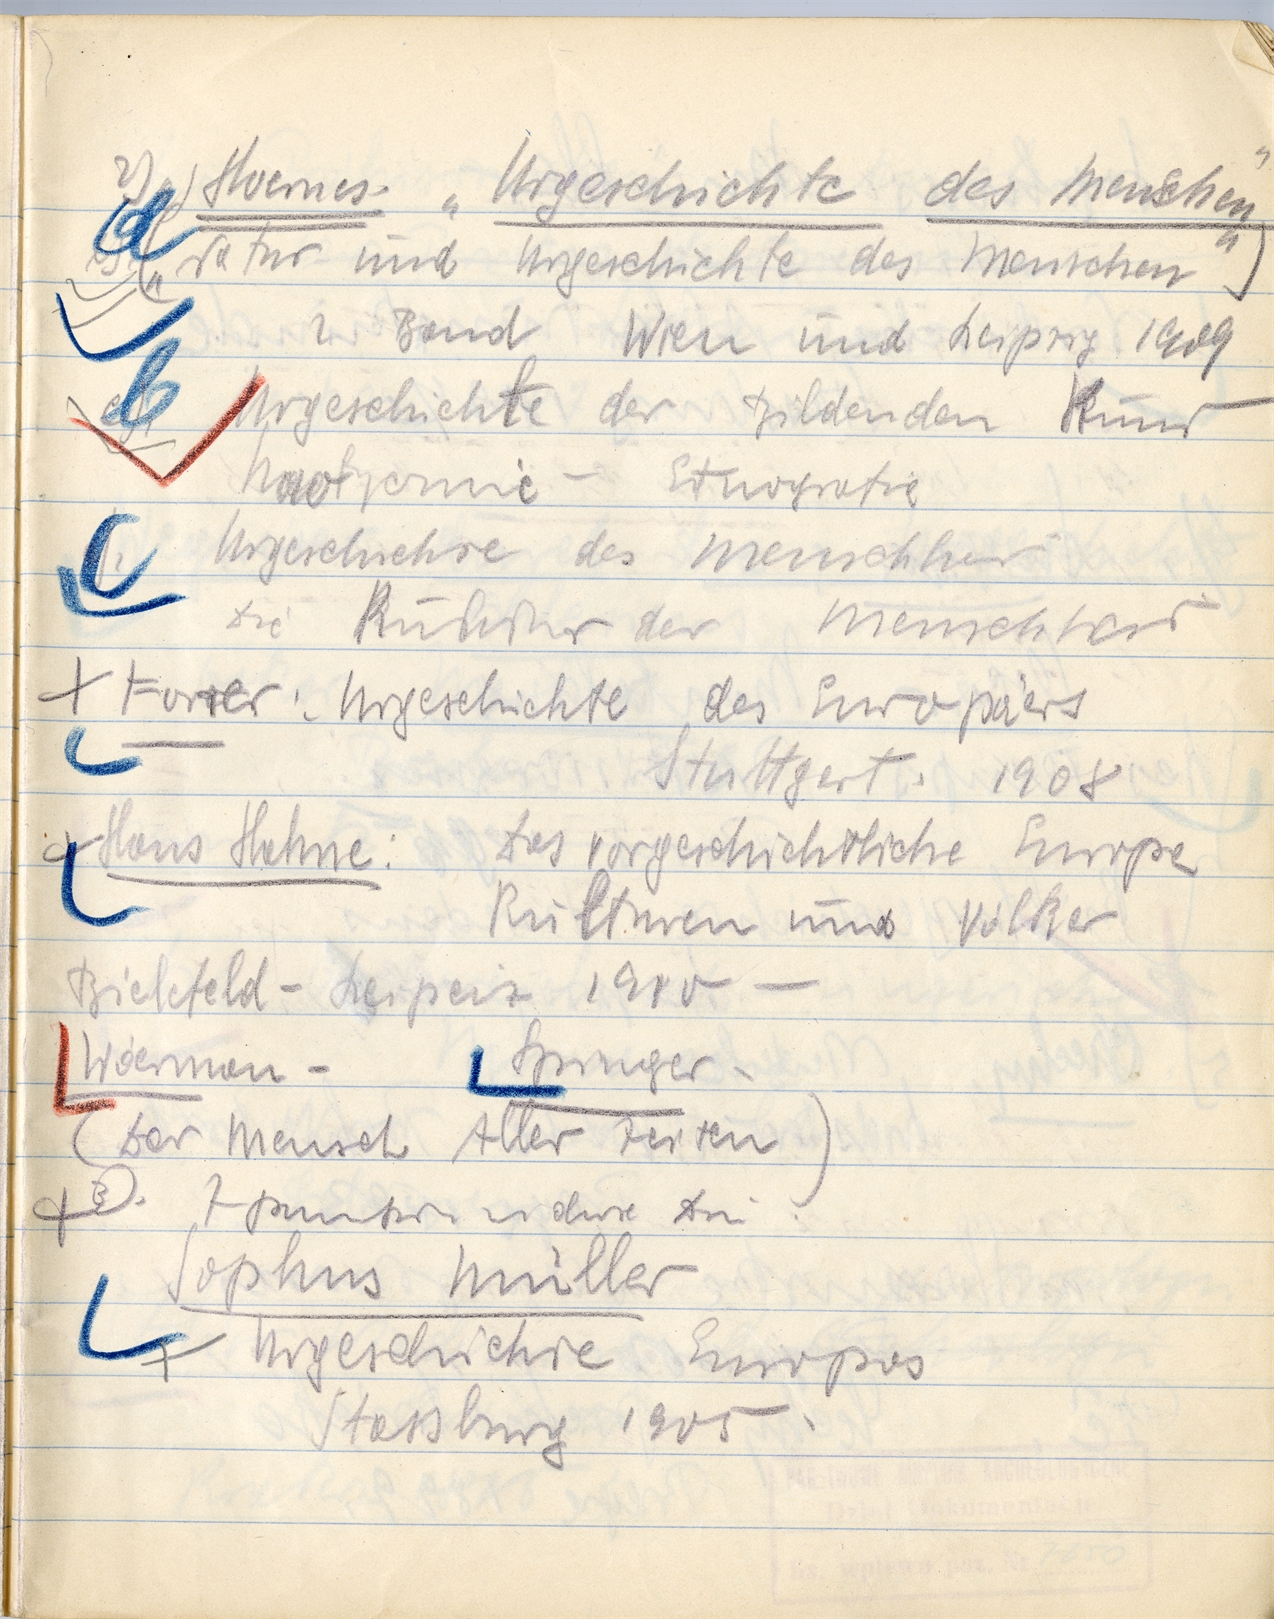 2) Hoernes. „Urgeschichte des Menschen"
a („Natur und Urgeschichte des Menschen")
2 Band Wien und Leipzig 1909
b Urgeschichte der Bildenden Kunst
Etnografie
c Urgeschichte des Menschheit
Die Kultur der Menschheit
+ Forrer: Urgeschichte des Europäers
Stuttgart. 1908
Hans Hahne: Das vorgeschichtliche Europa
Kulturen und Völker
Bielefeld - Leipzig 1910 —
Woerman - Springer -
(Der Mensch Aller Zeiten)
3).
Sophus Müller
+ Urgeschichte Europas
Staßburg 1905.